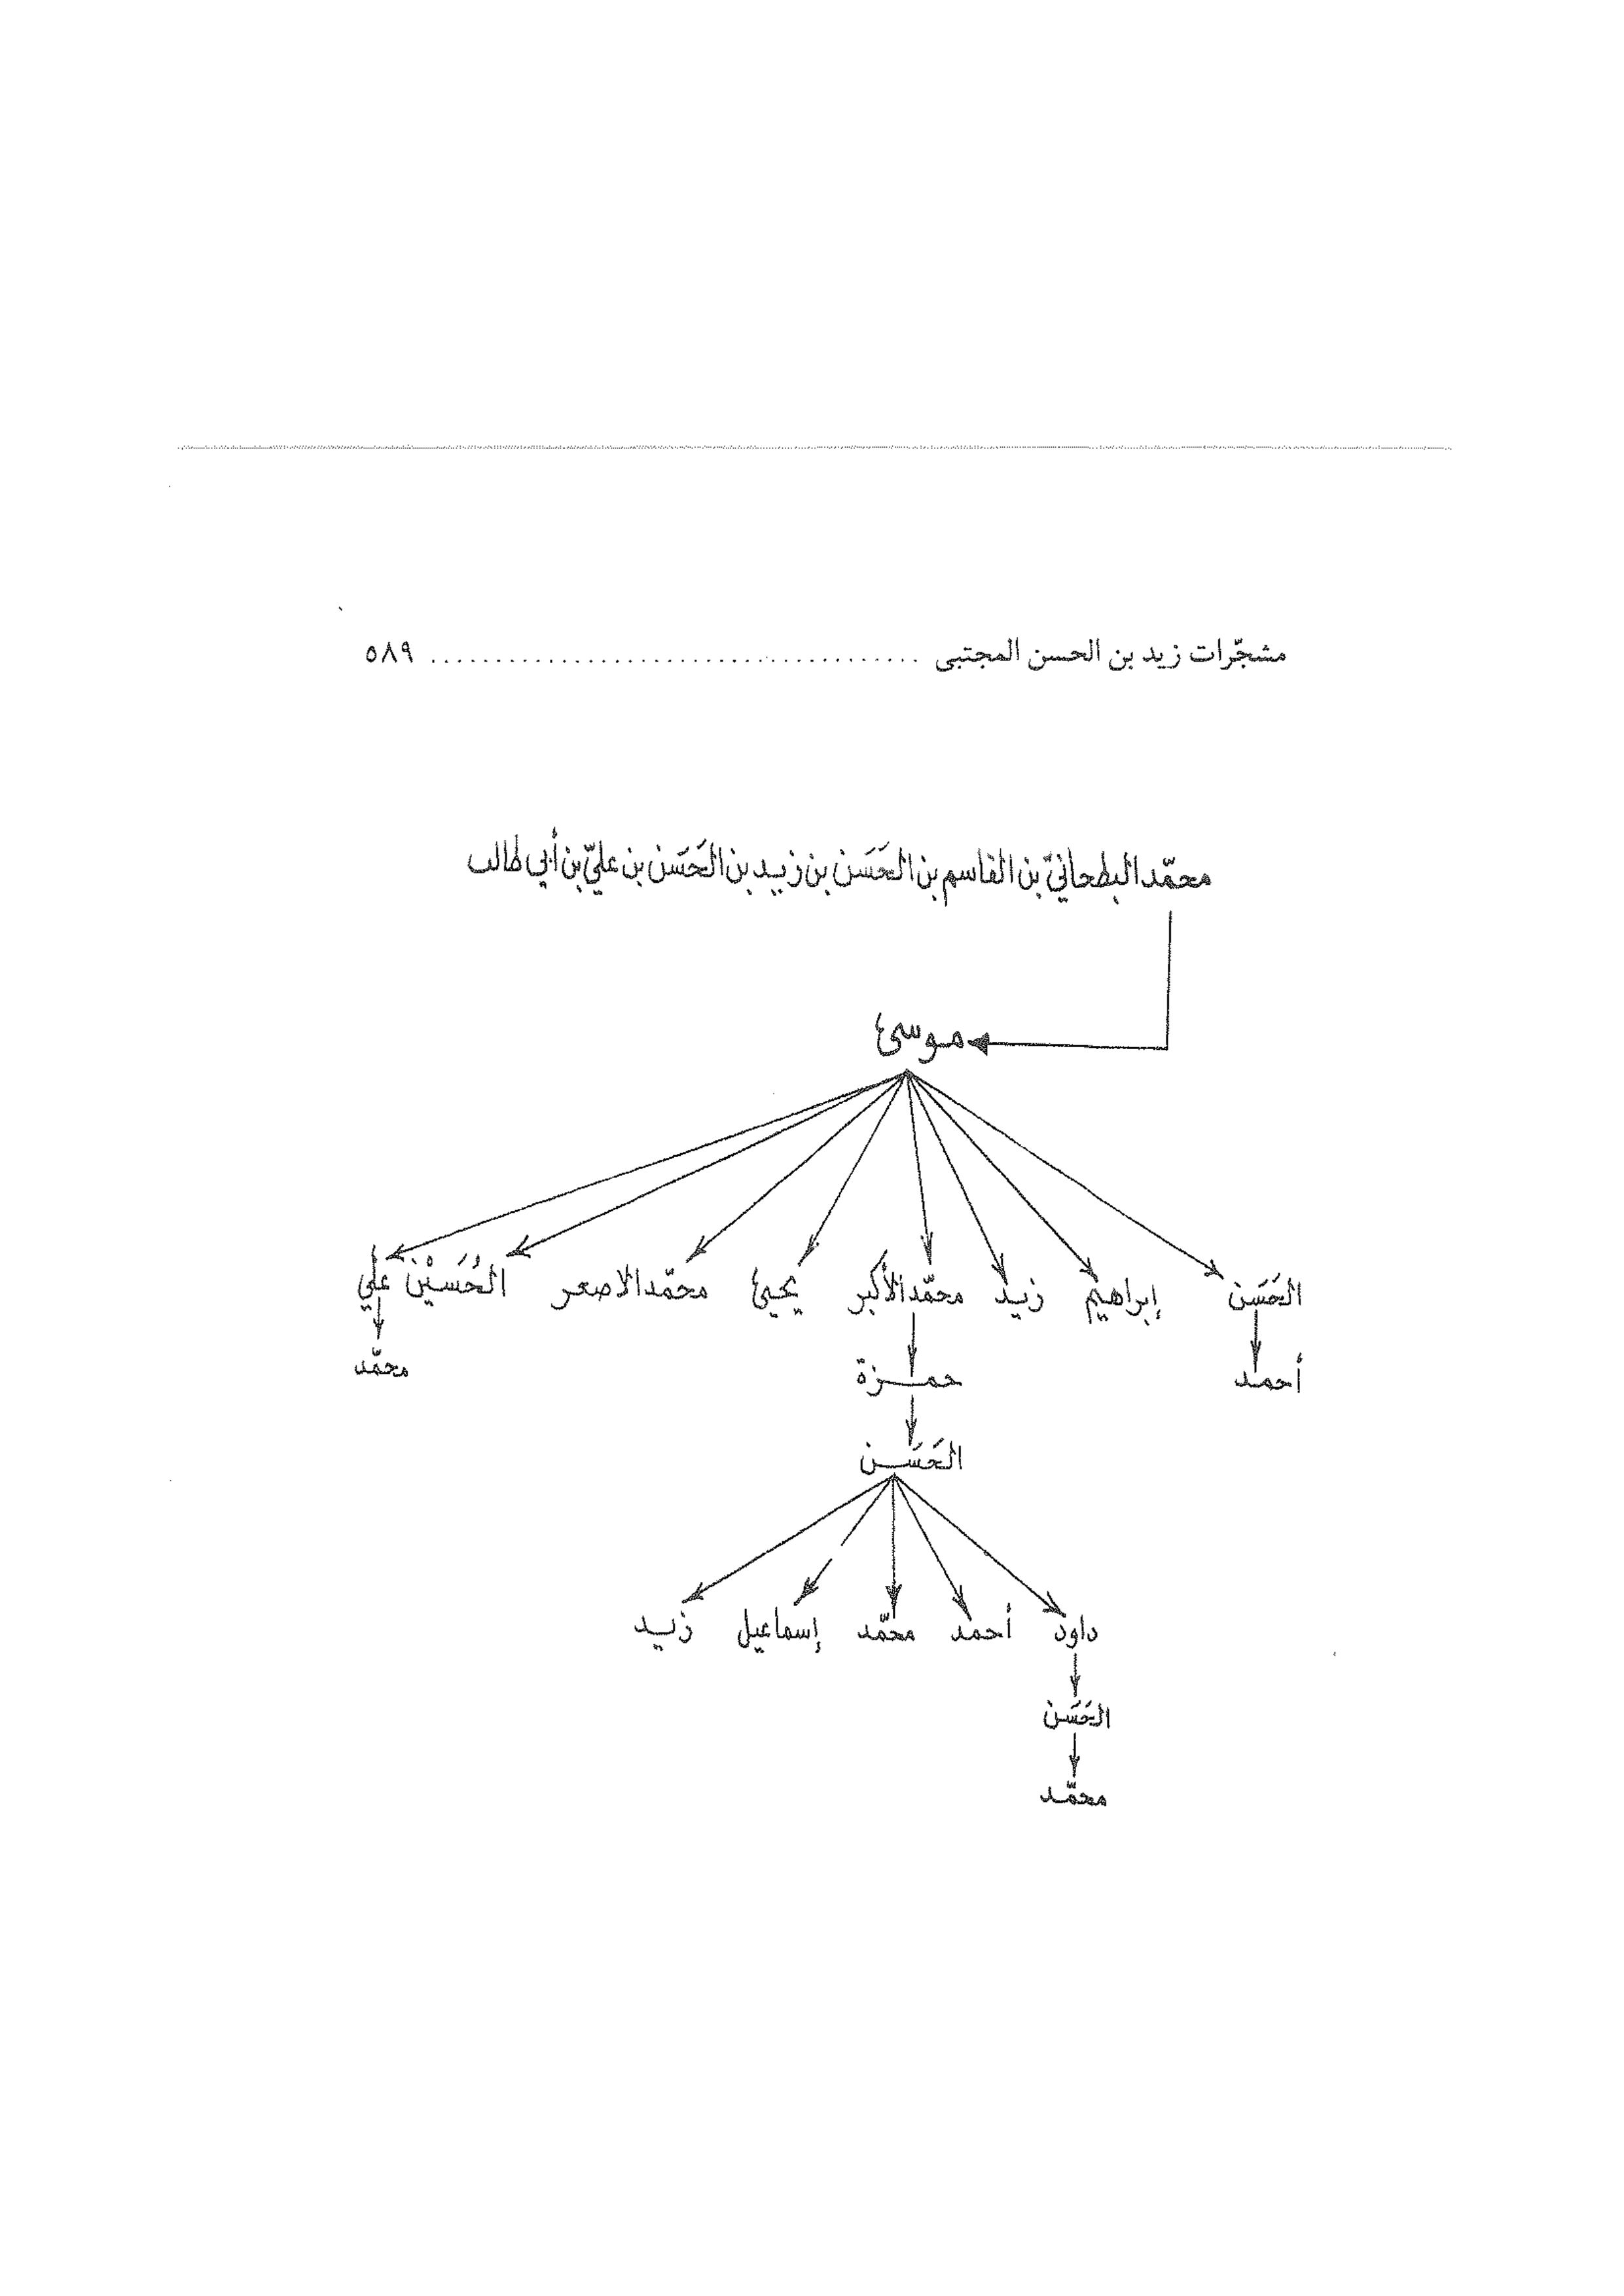 مشجّرات زيد بن الحسن المجتبى ..................................... ٥٨٩
محمّد البطحانيّ بن القاسم بن الحَسَن بن زيد بن الحَسَن بن عليّ بن أبي طالب
موسىٰ
الحَسَن إبراهيم زيد محمّد الأكبر يحيىٰ محمّد الاصعر الحُسَيْن علي
أحمد حمزة محمّد
الحَسَن
داود أحمد محمّد إسماعيل زيد
الحَسَن
محمّد